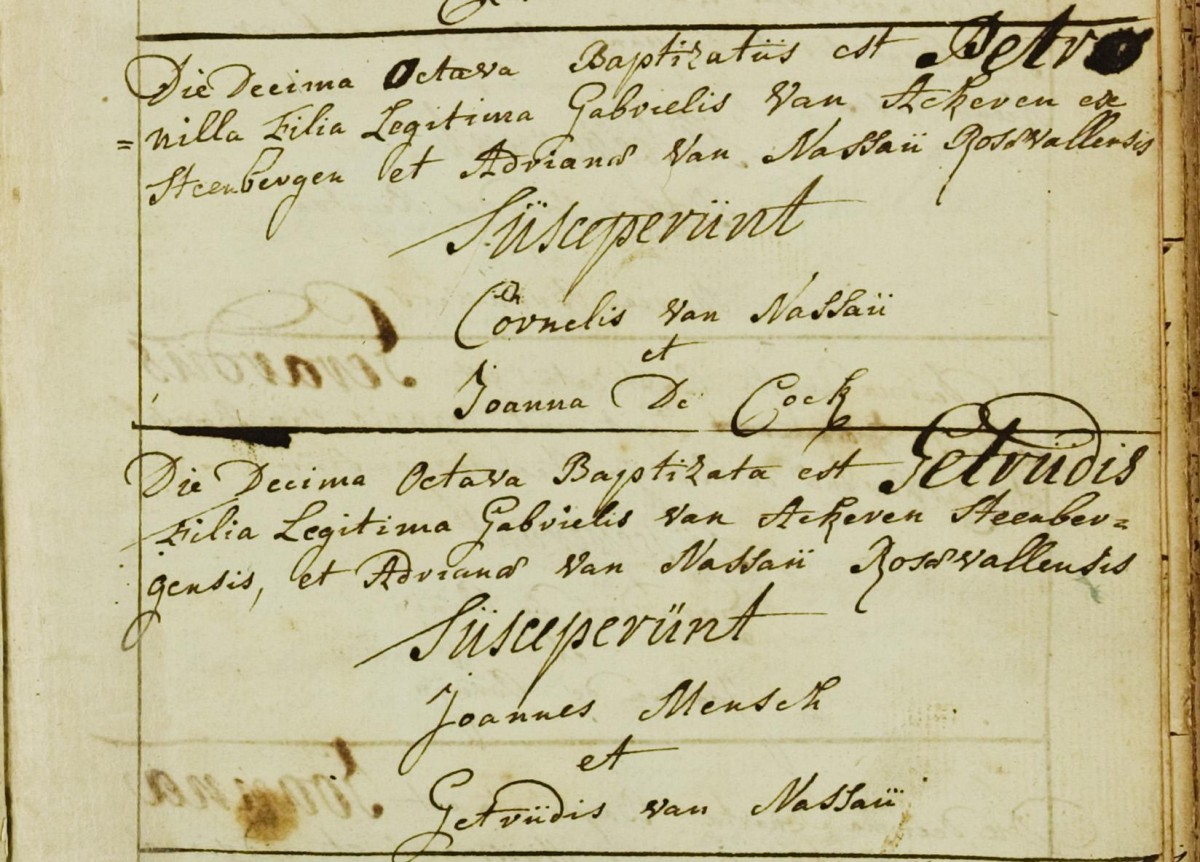 Die Decima Octava Baptizatüs est Petro
= nilla Filia Legitima Gabrielis Van Ackeren ex
Steenbergen et Adrianæ Van Nassaü Rosævallensis
Süsceperünt
Cornelis Van Nassaü
et
Joanna De Cock
Die Decima Octava Baptizata est Getrüdis
Filia Legitima Gabrielis Van Ackeren Steenber=
gensis, et Adrianæ Van Nassaü Rosævallensis
Süsceperünt
Joannes Mensch
et
Getrüdis van Nassaü